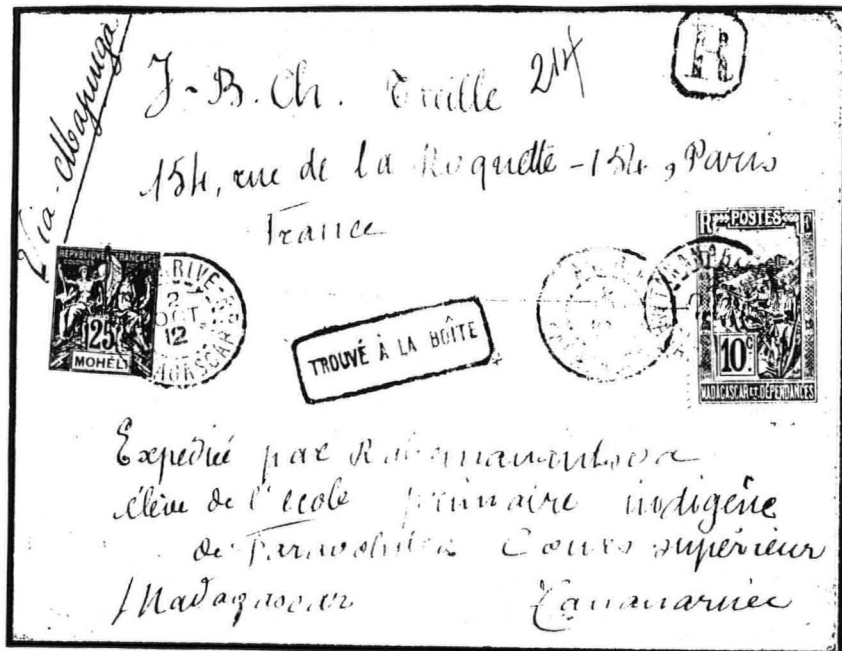 Via-Majunga
J-B. Ch. 214
R
154, rue de la Roquette-154, Paris
France
REPUBLIQUE FRANÇAISE
COLONIES
25
MOHÉLI
RIVE-R
2
OCT.
12
MADAGASCAR
TROUVÉ À LA BOÎTE
R POSTES F
10c
MADAGASCAR ET DÉPENDANCES
Expédié par
élève de l'école primaire indigène
de Cours supérieur
Madagascar Tananarive